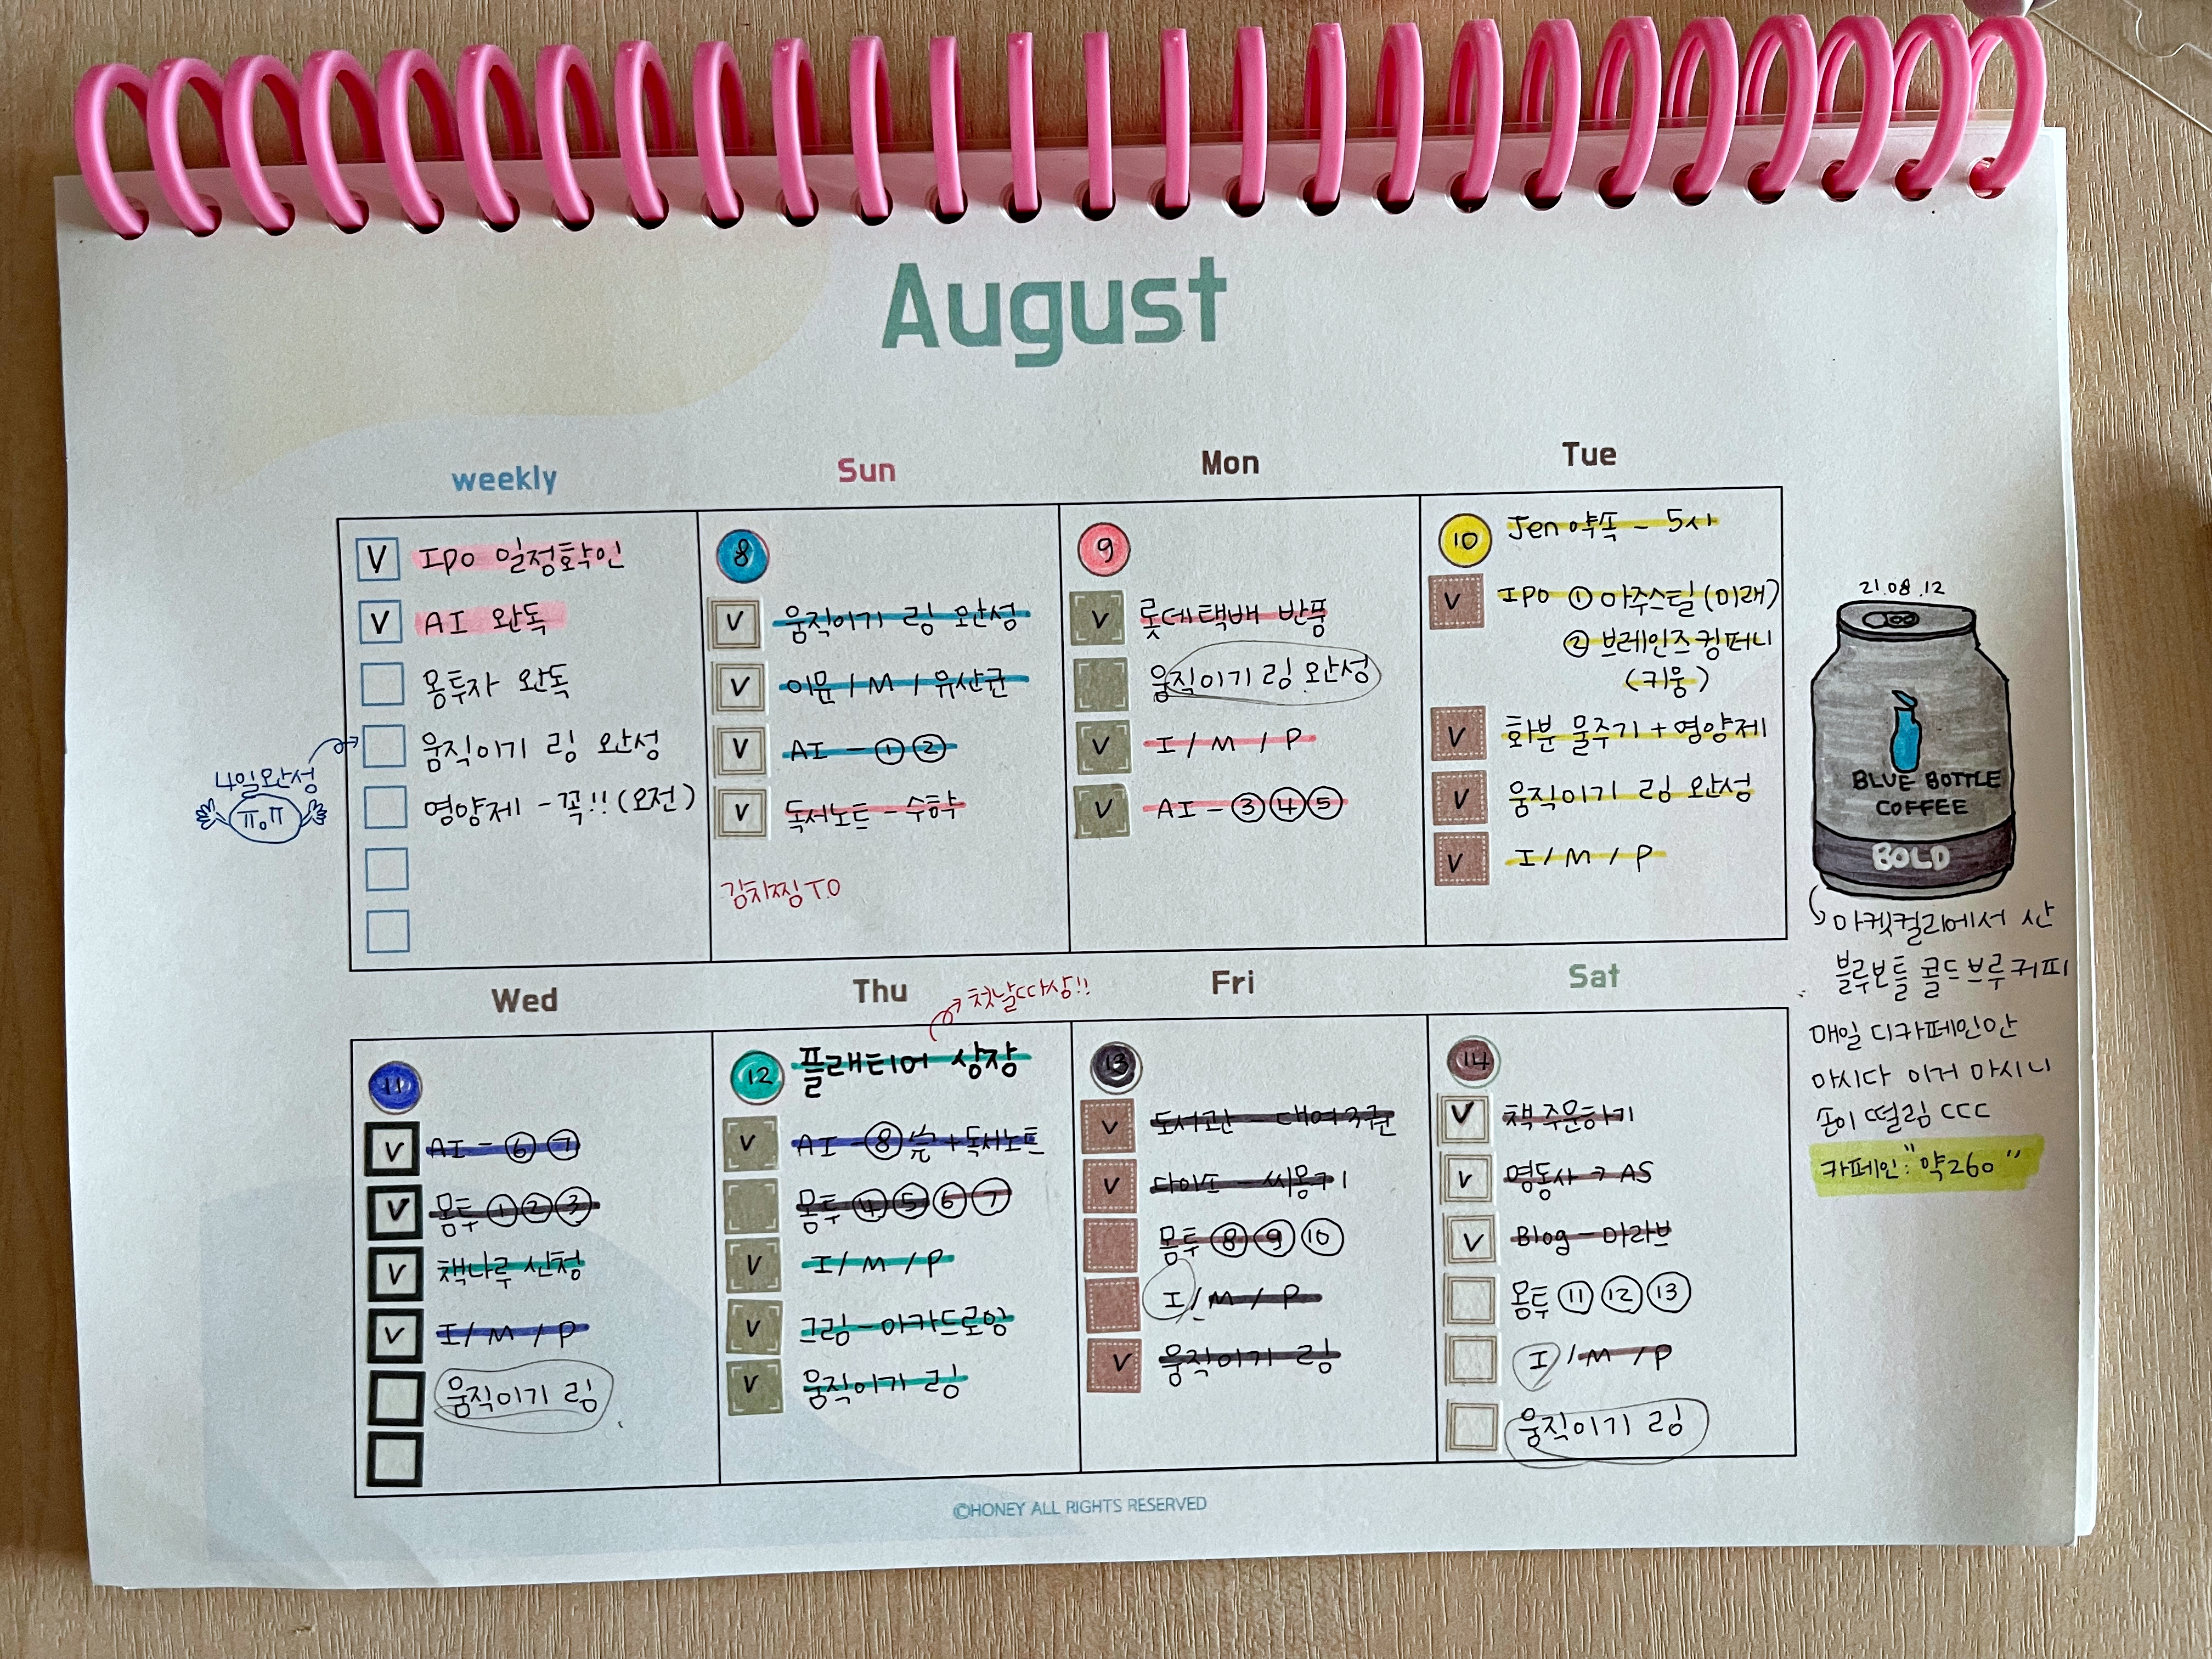 August
weekly
Sun
Mon
Tue
V IPO 일정확인
V AI 완독
몽투자 완독
움직이기 링 완성
영양제 - 꼭!! (오전)
4일완성
ㅠoㅠ
8
V 움직이기 링 완성
V 이뮨 / M / 유산균
V AI - ① ②
V 독서노트 - 수학
김치찜 T.O
9
V 롯데택배 반품
움직이기 링 완성
V I / M / P
V AI - ③ ④ ⑤
10 Jen 약속 - 5시
V IPO ① 아주스틸 (미래)
② 브레인즈컴퍼니
(키움)
V 화분 물주기 + 영양제
V 움직이기 링 완성
V I / M / P
21.08.12
BLUE BOTTLE
COFFEE
BOLD
마켓컬리에서 산
블루보틀 콜드브루커피
매일 디카페인만
마시다 이거 마시니
손이 떨림 ㄷㄷㄷ
카페인: "약260"
Wed
Thu
Fri
Sat
첫날따상!!
11
V AI - ⑥ ⑦
V 몽투 ① ② ③
V 책나루 신청
V I / M / P
움직이기 링
12 플래티어 상장
V AI - ⑧ 끝 + 독서노트
몽투 ④ ⑤ ⑥ ⑦
V I / M / P
V 크림 - 아카드로잉
V 움직이기 링
13
V 도서관 - 대여 3권
V 다이소 - 씨몽키
몽투 ⑧ ⑨ ⑩
I / M / P
V 움직이기 링
14
V 책 주문하기
V 명동사 → AS
V Blog - 마라브
몽투 ⑪ ⑫ ⑬
I / M / P
움직이기 링
©HONEY ALL RIGHTS RESERVED